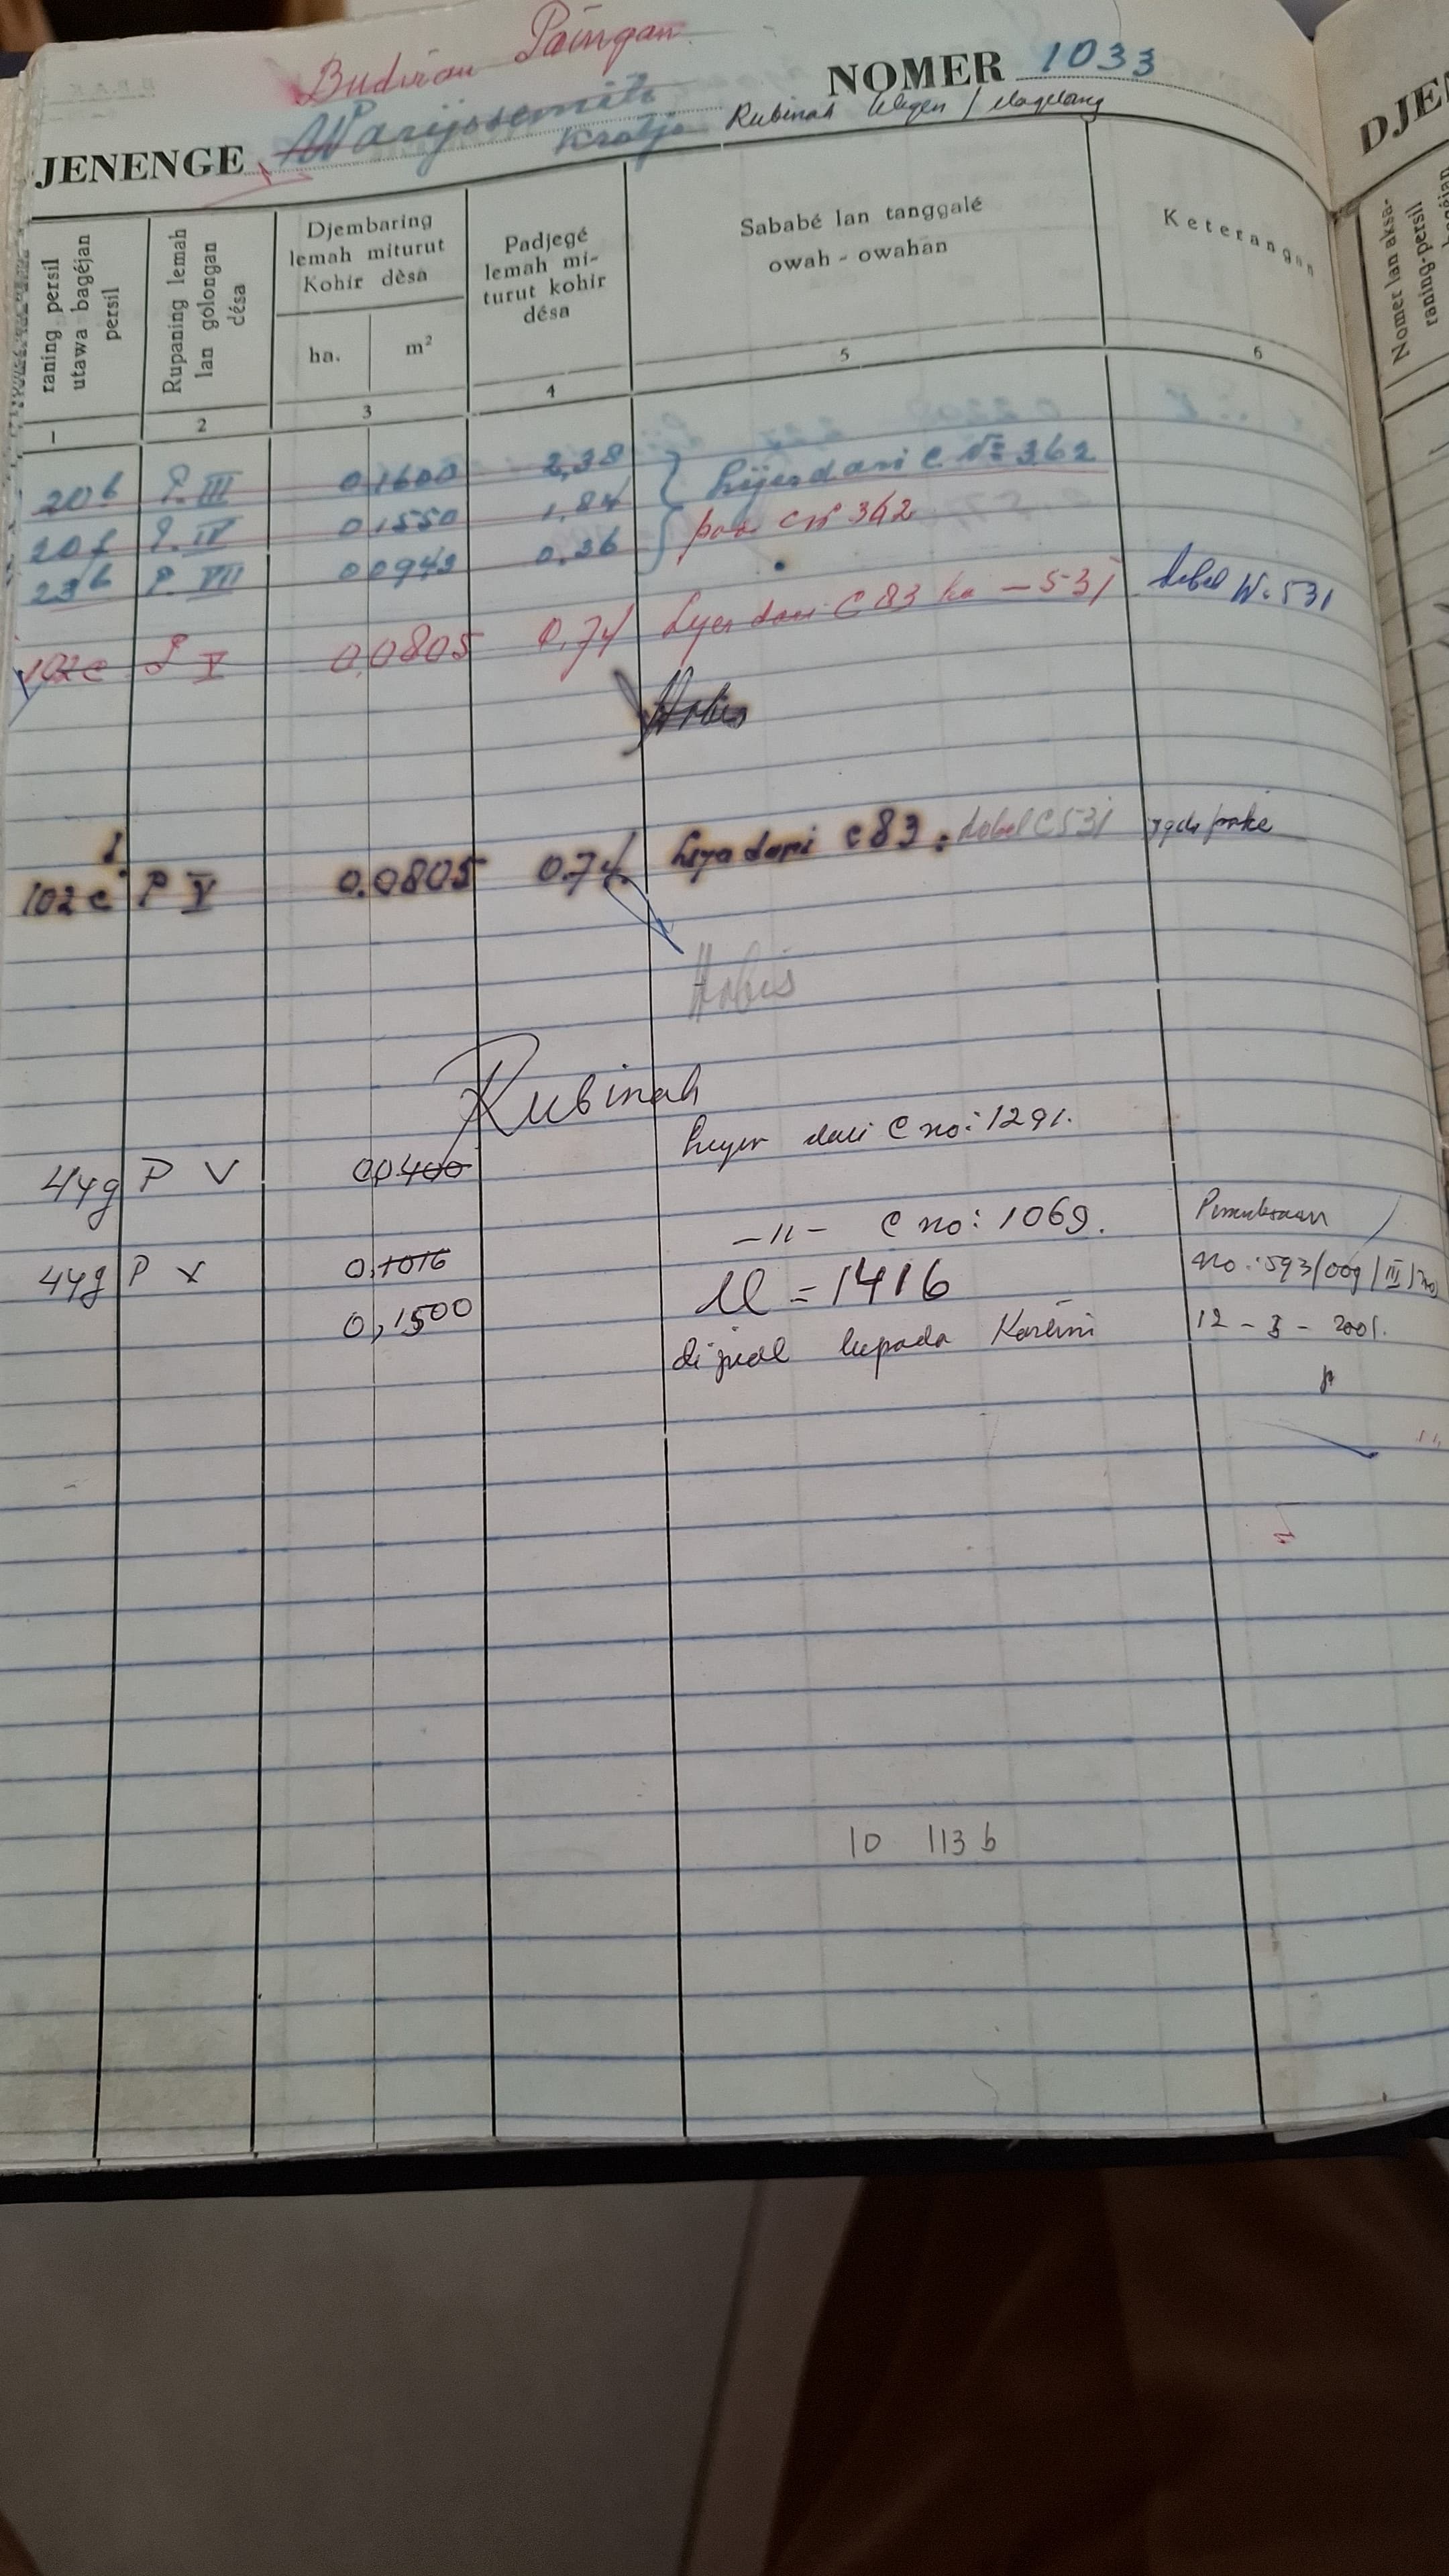 Budiran Paingan
NOMER 1033
JENENGE Warijosemito Kradjo Rubinah / Magelang
raning persil utawa bagéjan persil
Rupaning lemah lan golongan désa
Djembaring lemah miturut Kohir dèsa
ha.
m²
Padjegé lemah mi-turut kohir désa
Sababé lan tanggalé owah - owahan
Keterangan
1 2 3 4 5 6
20b P. III 0,1600 2,38 liyer dari C No 362
20f P. IV 0,1550 1,84 C no 342
23b P. VII 0.0943 0,36
102c P V 0,0805 0,74 Lyer dari C 83 ke - 531 dobel No 531
Habis
102c d P V 0.0805 0.74 Liyer dari C 83. dobel C 531
Habis
Rubinah
44g P V 0,0400 liyer dari C no: 1291.
44g P V 0,1016 -11- C no: 1069.
0,1500 = 1416
dijual kepada Kartini
No: 593/009/III/
12 - 3 - 2001.
10 113 b
DJEN
Nomer lan aksa-raning persil